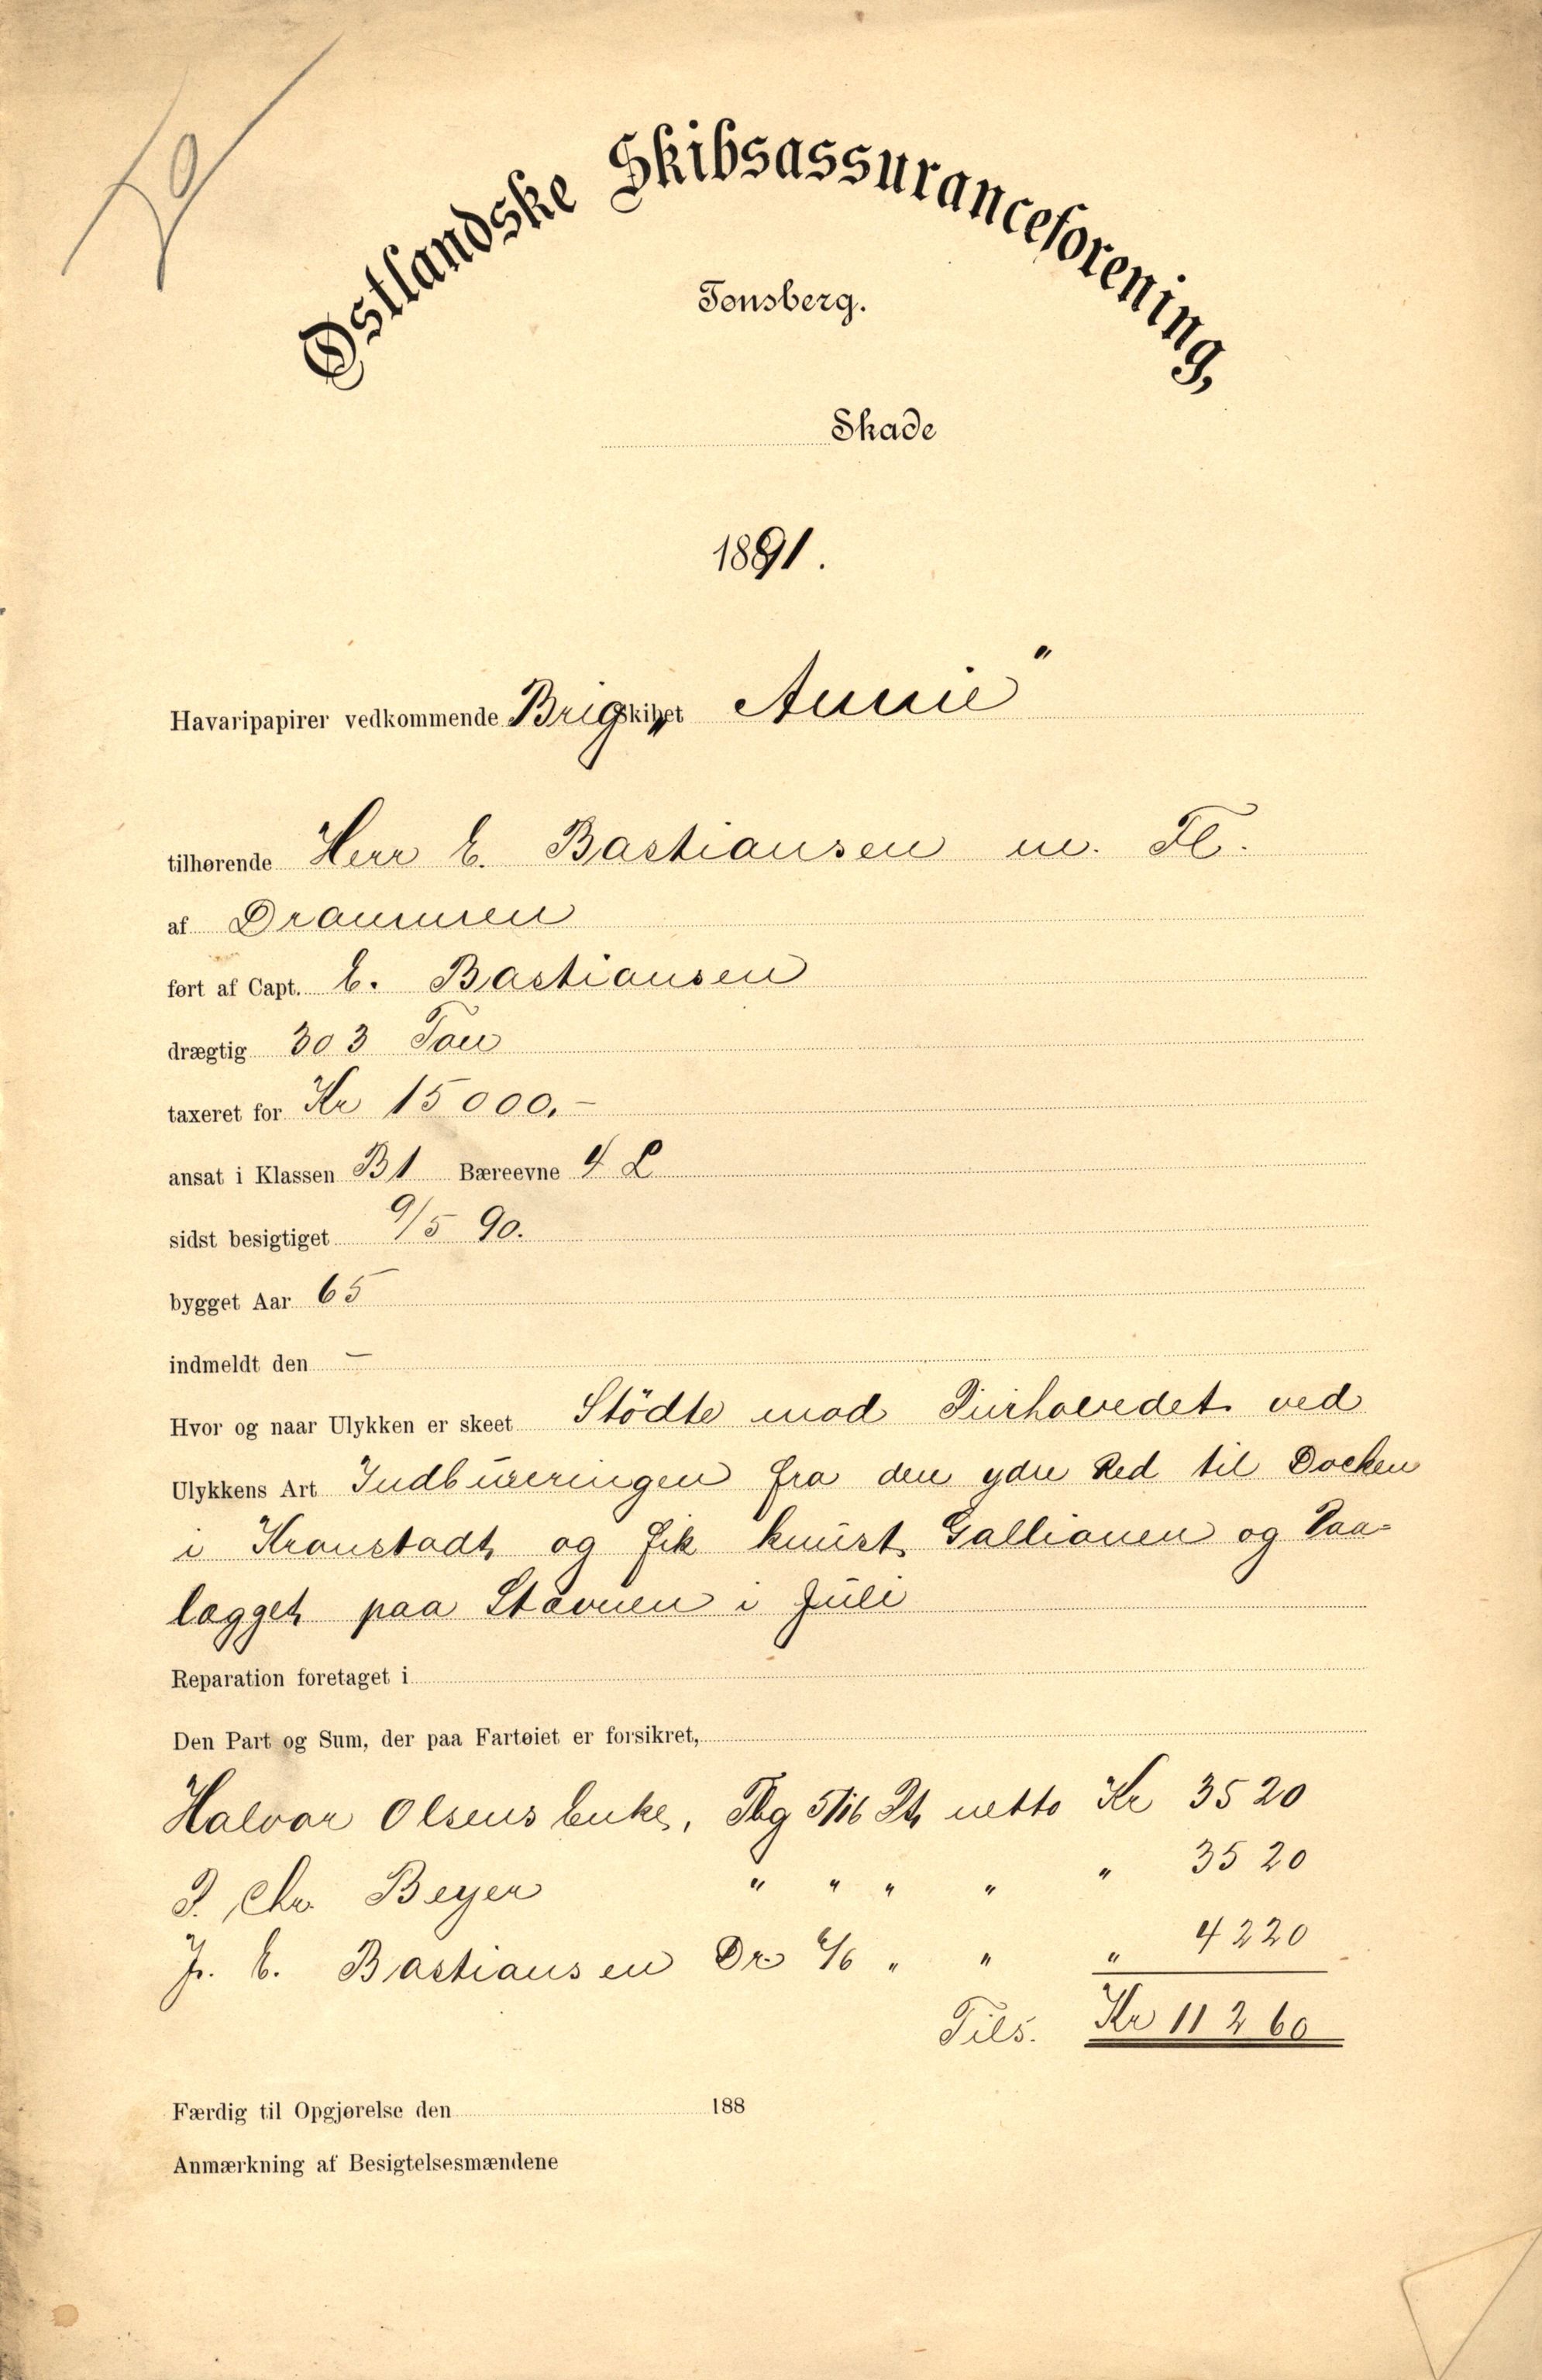 Østlandske Skibsassuranceforening,
Tønsberg.
Skade
1891.
Havaripapirer vedkommende Brigskibet „Annie"
tilhørende Herr C. Bastiansen m. Fl.
af Drammen
ført af Capt. C. Bastiansen
drægtig 303 Ton
taxeret for Kr 15000.-
ansat i Klassen B1 Bæreevne 4 L
sidst besigtiget 9/5 90.
bygget Aar 65
indmeldt den –
Hvor og naar Ulykken er skeet Stödte mod Pirhovedet ved
Ulykkens Art Indbuxeringen fra den ydre Red til Docken
i Kronstadt og fik knust Gallionen og Paa-
lægget paa Stævnen i Juli
Reparation foretaget i
Den Part og Sum, der paa Fartøiet er forsikret,
Halvor Olsens Enke, Tbg 5/16 Pt netto Kr 3520
P. Chr. Beyer " " " " " 3520
Jr. C. Bastiansen Dr 6/16 " " " 4220
Tils. Kr 11260
Færdig til Opgjørelse den 188
Anmærkning af Besigtelsesmændene